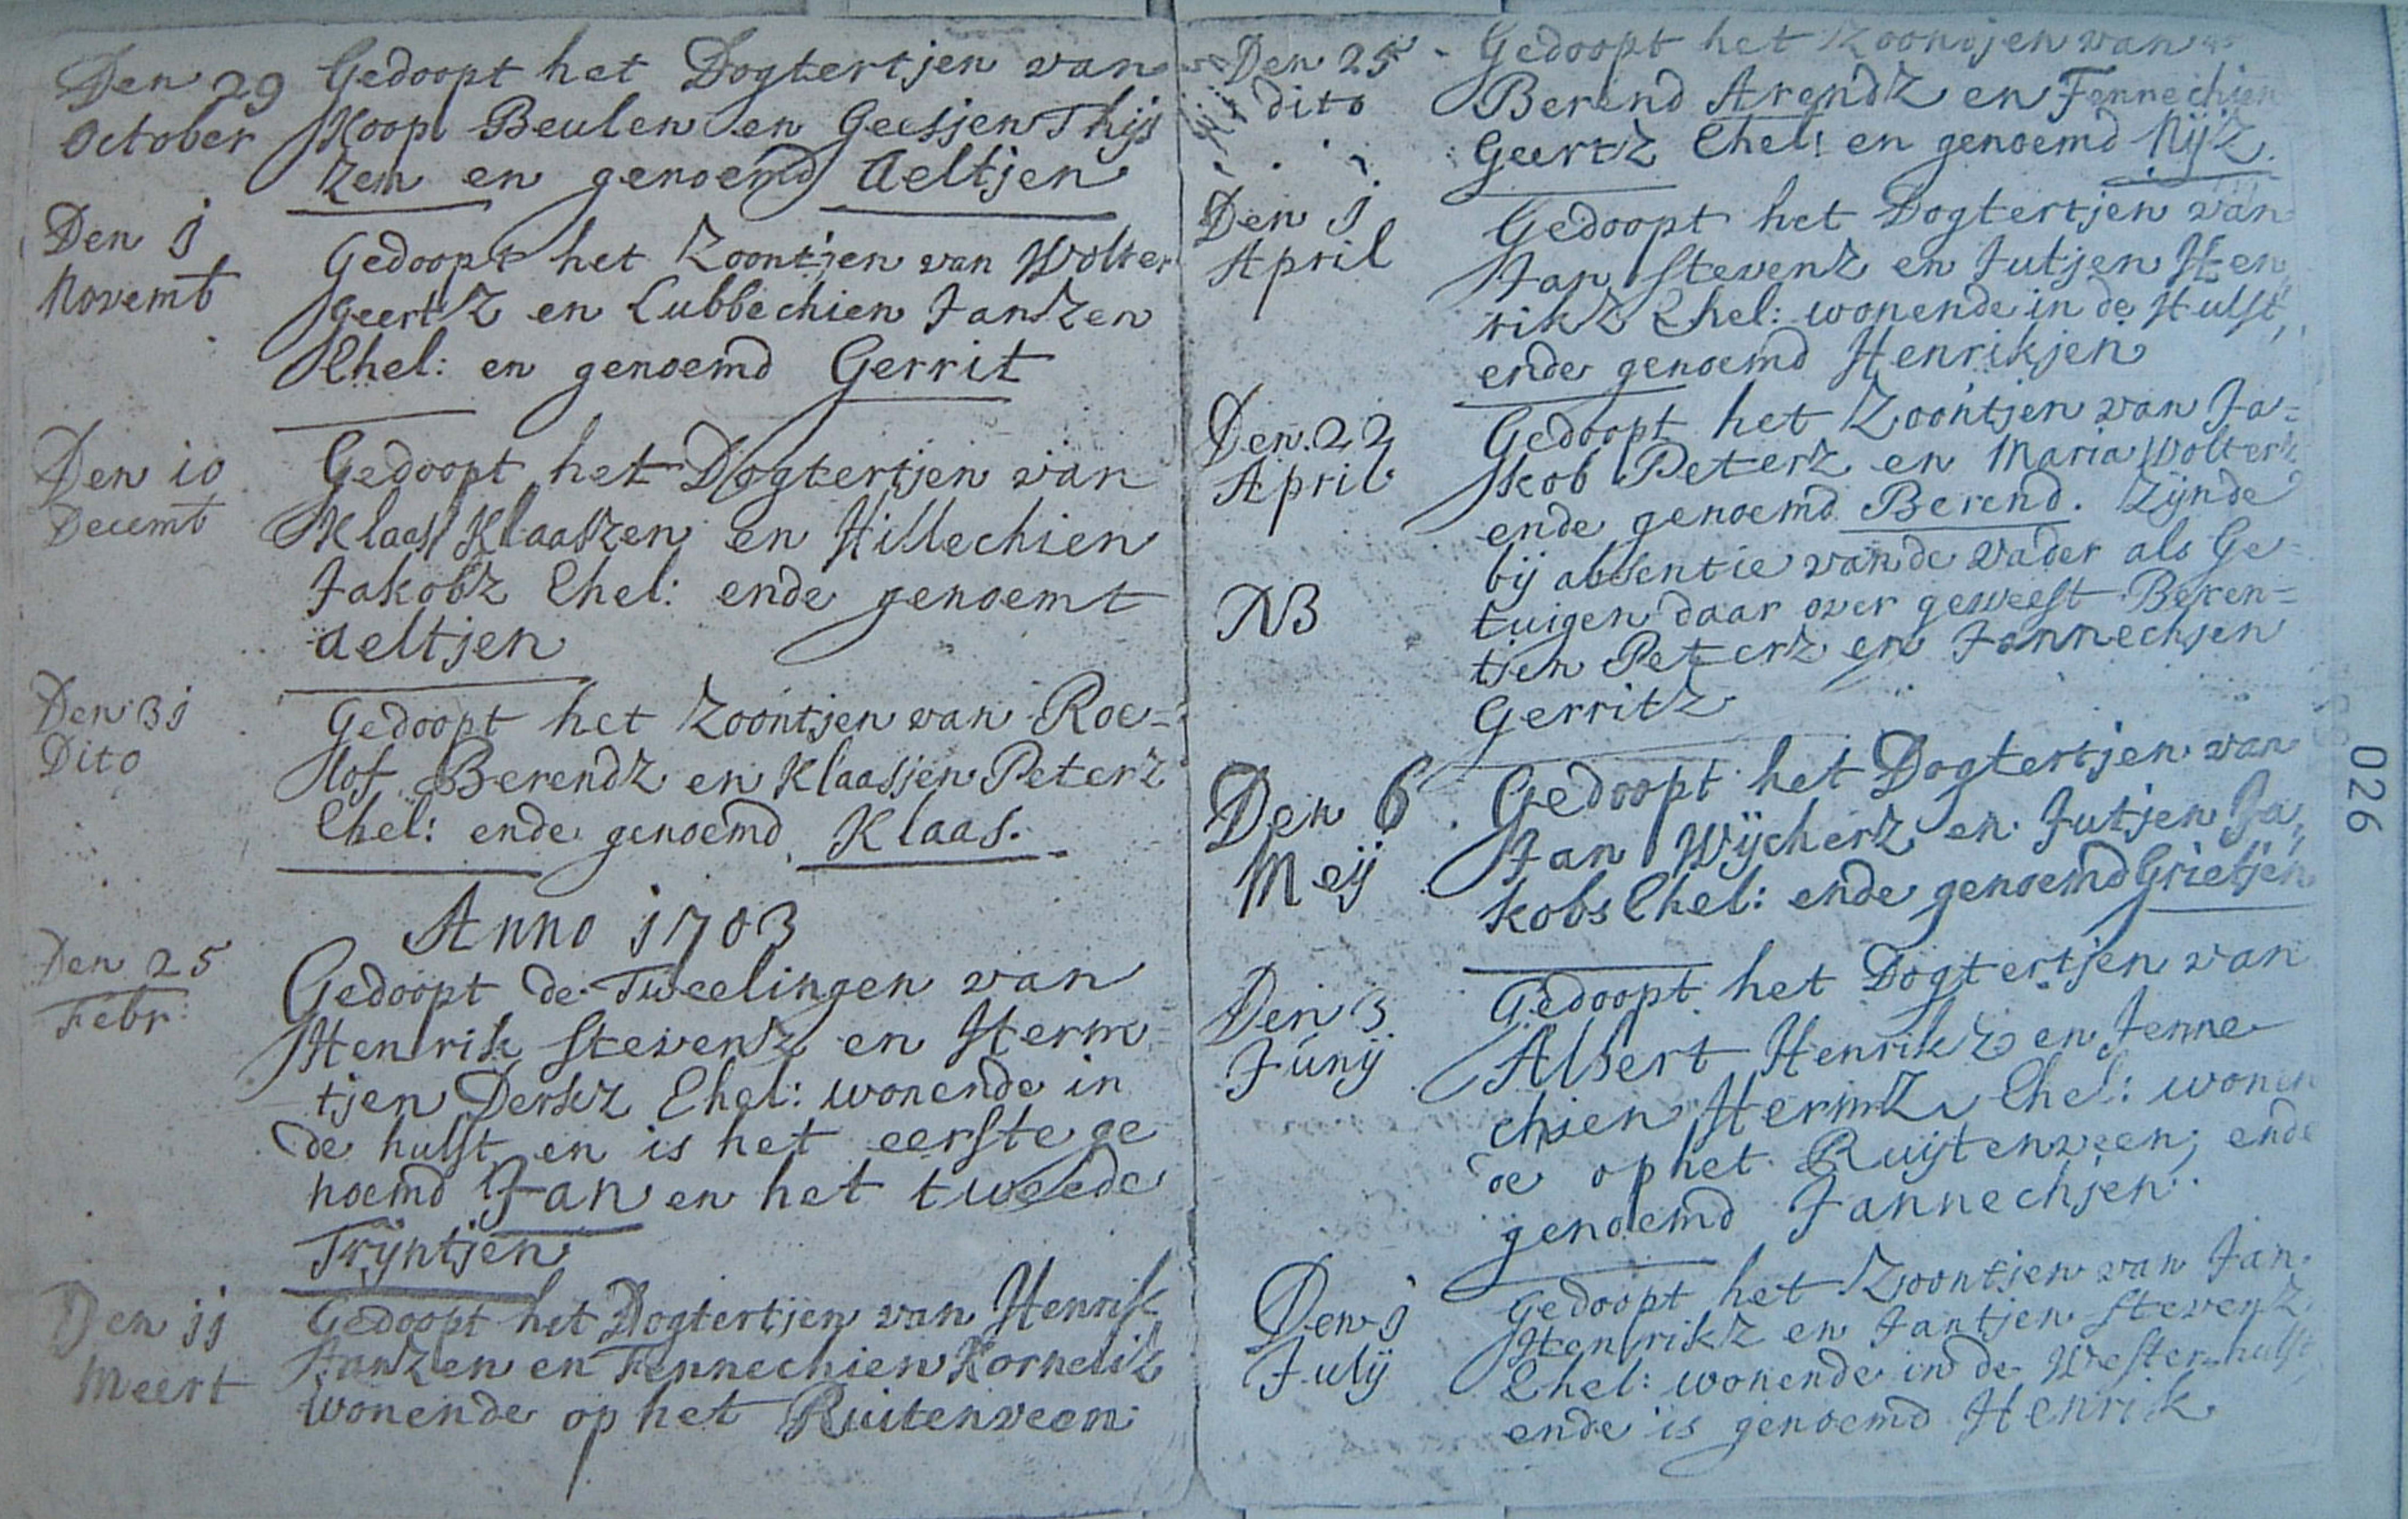 Den 29
October
Gedoopt het Dogtertjen van
Koop Beulen en Geesjen Thijs
zen en genoemd Aeltjen
Den j
Novemb
Gedoopt het Zoontjen van Wolter
Geertz en Lubbechien Janzen
Ehel: en genoemd Gerrit
Den io
Decemb
Gedoopt het Dogtertjen van
Klaas Klaaszen en Hillechien
Jakobz Ehel: ende genoemt
Aeltjen
Den 3j
Dito
Gedoopt het Zoontjen van Roe-
lof Berendz en Klaasjen Peterz
Ehel: ende genoemd Klaas.
Anno j703
Den 25
Febr:
Gedoopt de Tweelingen van
Henrik Stevenz en Herm-
tjen Derkz Ehel: wonende in
de hulst en is het eerste ge
noemd Jan en het tweede
Trijntjen
Den jj
Meert
Gedoopt het Dogtertjen van Henrik
Janzen en Fennechien Korneliz
wonende op het Ruitenveen
Den 25
dito
Gedoopt het Zoontjen van
Berend Arendz en Fennechien
Geertz Ehel: en genoemd Nijz.
Den j
April
Gedoopt het Dogtertjen van
Jan Stevenz en Jutjen Hen
rikz Ehel: wonende in de Hulst,
ende genoemd Henrikjen
Den 22
April
Gedoopt het Zoontjen van Ja=
kob Peterz en Maria Wolterz
ende genoemd Berend. Zijnde
NB
bij absentie van de vader als Ge=
tuigen daar over geweest Beren=
tjen Peterz en Jannechjen
Gerritz
Den 6
Meij
Gedoopt het Dogtertjen van
Jan Wijcherz en Jutjen Ja,,
kobs Ehel: ende genoemd Grietjen
Den 3
Junij
Gedoopt het Dogtertjen van
Albert Henrikz en Jenne
chien Hermz Ehel: wonen
de op het Ruijtenveen; ende
genoemd Jannechjen.
Den j
Julij
Gedoopt het Zoontjen van Jan
Henrikz en Jantjen Stevenz
Ehel: wonende in de Westerhulst
ende is genoemd Henrik
026